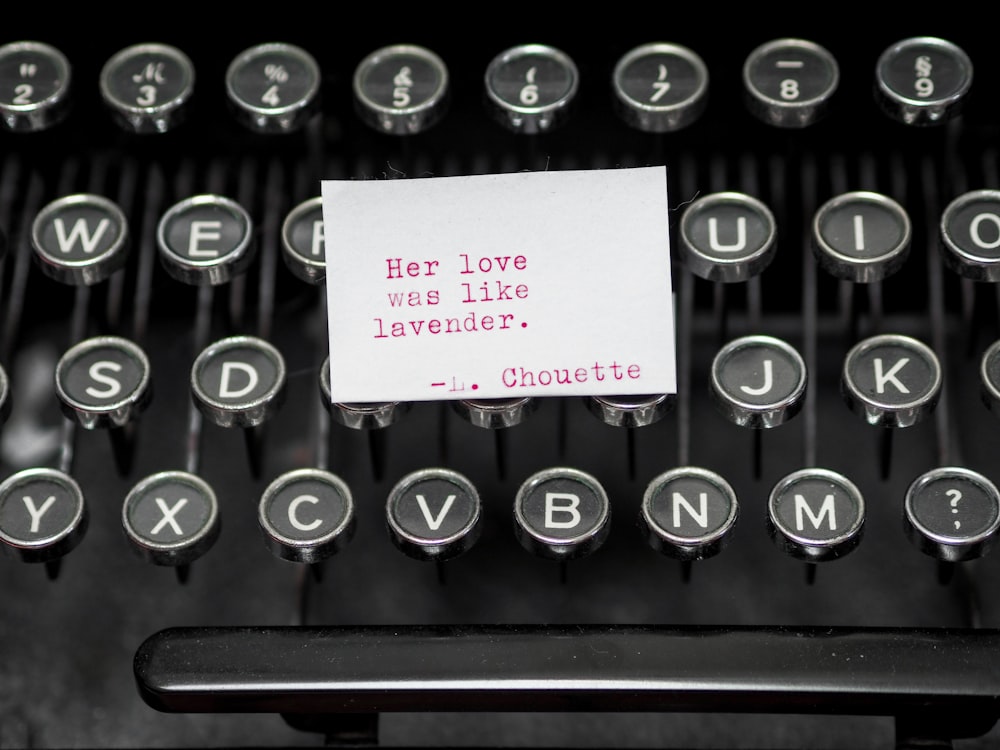 " 2 ℳ 3 % 4 & 5 ( 6 ) 7 _ 8 § 9
W E R U I O
Her love
was like
lavender.
-L. Chouette
S D J K
Y X C V B N M ? ;